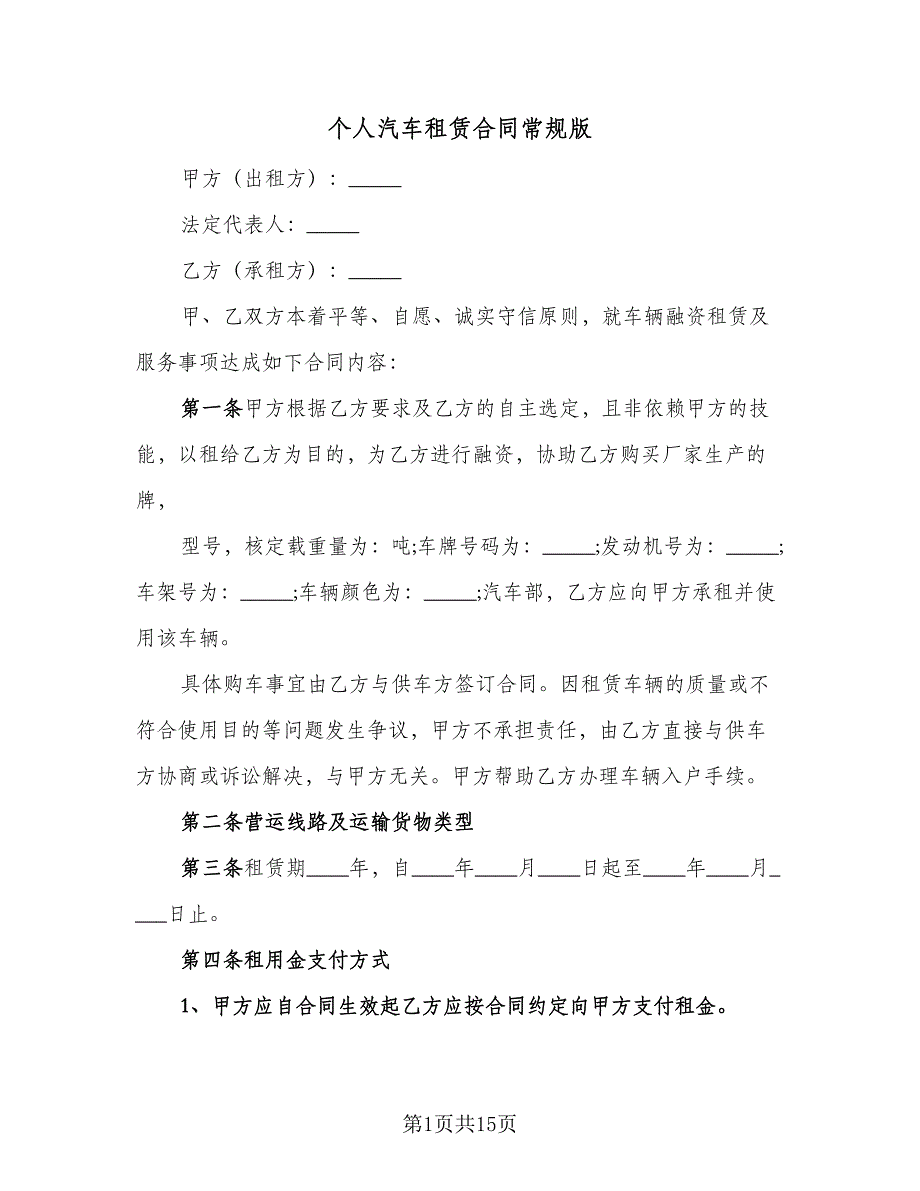 个人汽车租赁合同常规版
甲方（出租方）：_____
法定代表人：_____
乙方（承租方）：_____
甲、乙双方本着平等、自愿、诚实守信原则，就车辆融资租赁及
服务事项达成如下合同内容：
第一条甲方根据乙方要求及乙方的自主选定，且非依赖甲方的技
能，以租给乙方为目的，为乙方进行融资，协助乙方购买厂家生产的
牌，
型号，核定载重量为：吨;车牌号码为：_____;发动机号为：_____;
车架号为：_____;车辆颜色为：_____;汽车部，乙方应向甲方承租并使
用该车辆。
具体购车事宜由乙方与供车方签订合同。因租赁车辆的质量或不
符合使用目的等问题发生争议，甲方不承担责任，由乙方直接与供车
方协商或诉讼解决，与甲方无关。甲方帮助乙方办理车辆入户手续。
第二条营运线路及运输货物类型
第三条租赁期____年，自____年____月____日起至____年____月_
___日止。
第四条租用金支付方式
1、甲方应自合同生效起乙方应按合同约定向甲方支付租金。
第1页共15页